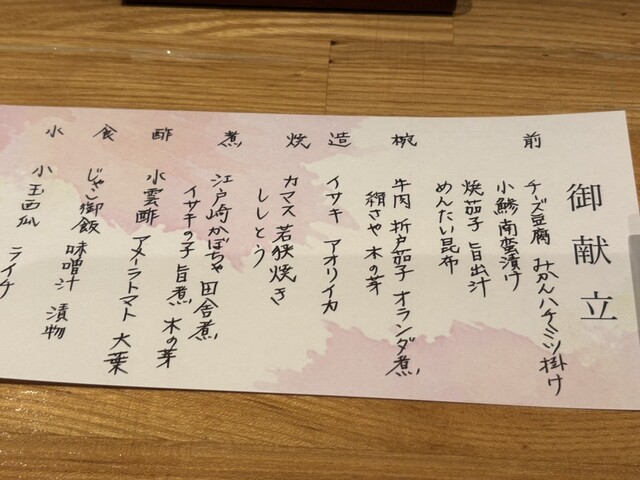 御献立
前
チーズ豆腐 みかんハチミツ掛け
小鯵南蛮漬け
焼茄子 旨出汁
めんたい昆布
椀
牛肉 折戸茄子 オランダ煮
絹さや 木の芽
造
イサキ アオリイカ
焼
カマス 若狭焼き
ししとう
煮
江戸崎かぼちゃ 田舎煮
イサキの子 旨煮 木の芽
酢
水雲酢 アメーラトマト 大葉
食
じゃこ御飯 味噌汁 漬物
水
小玉西瓜 ライチ